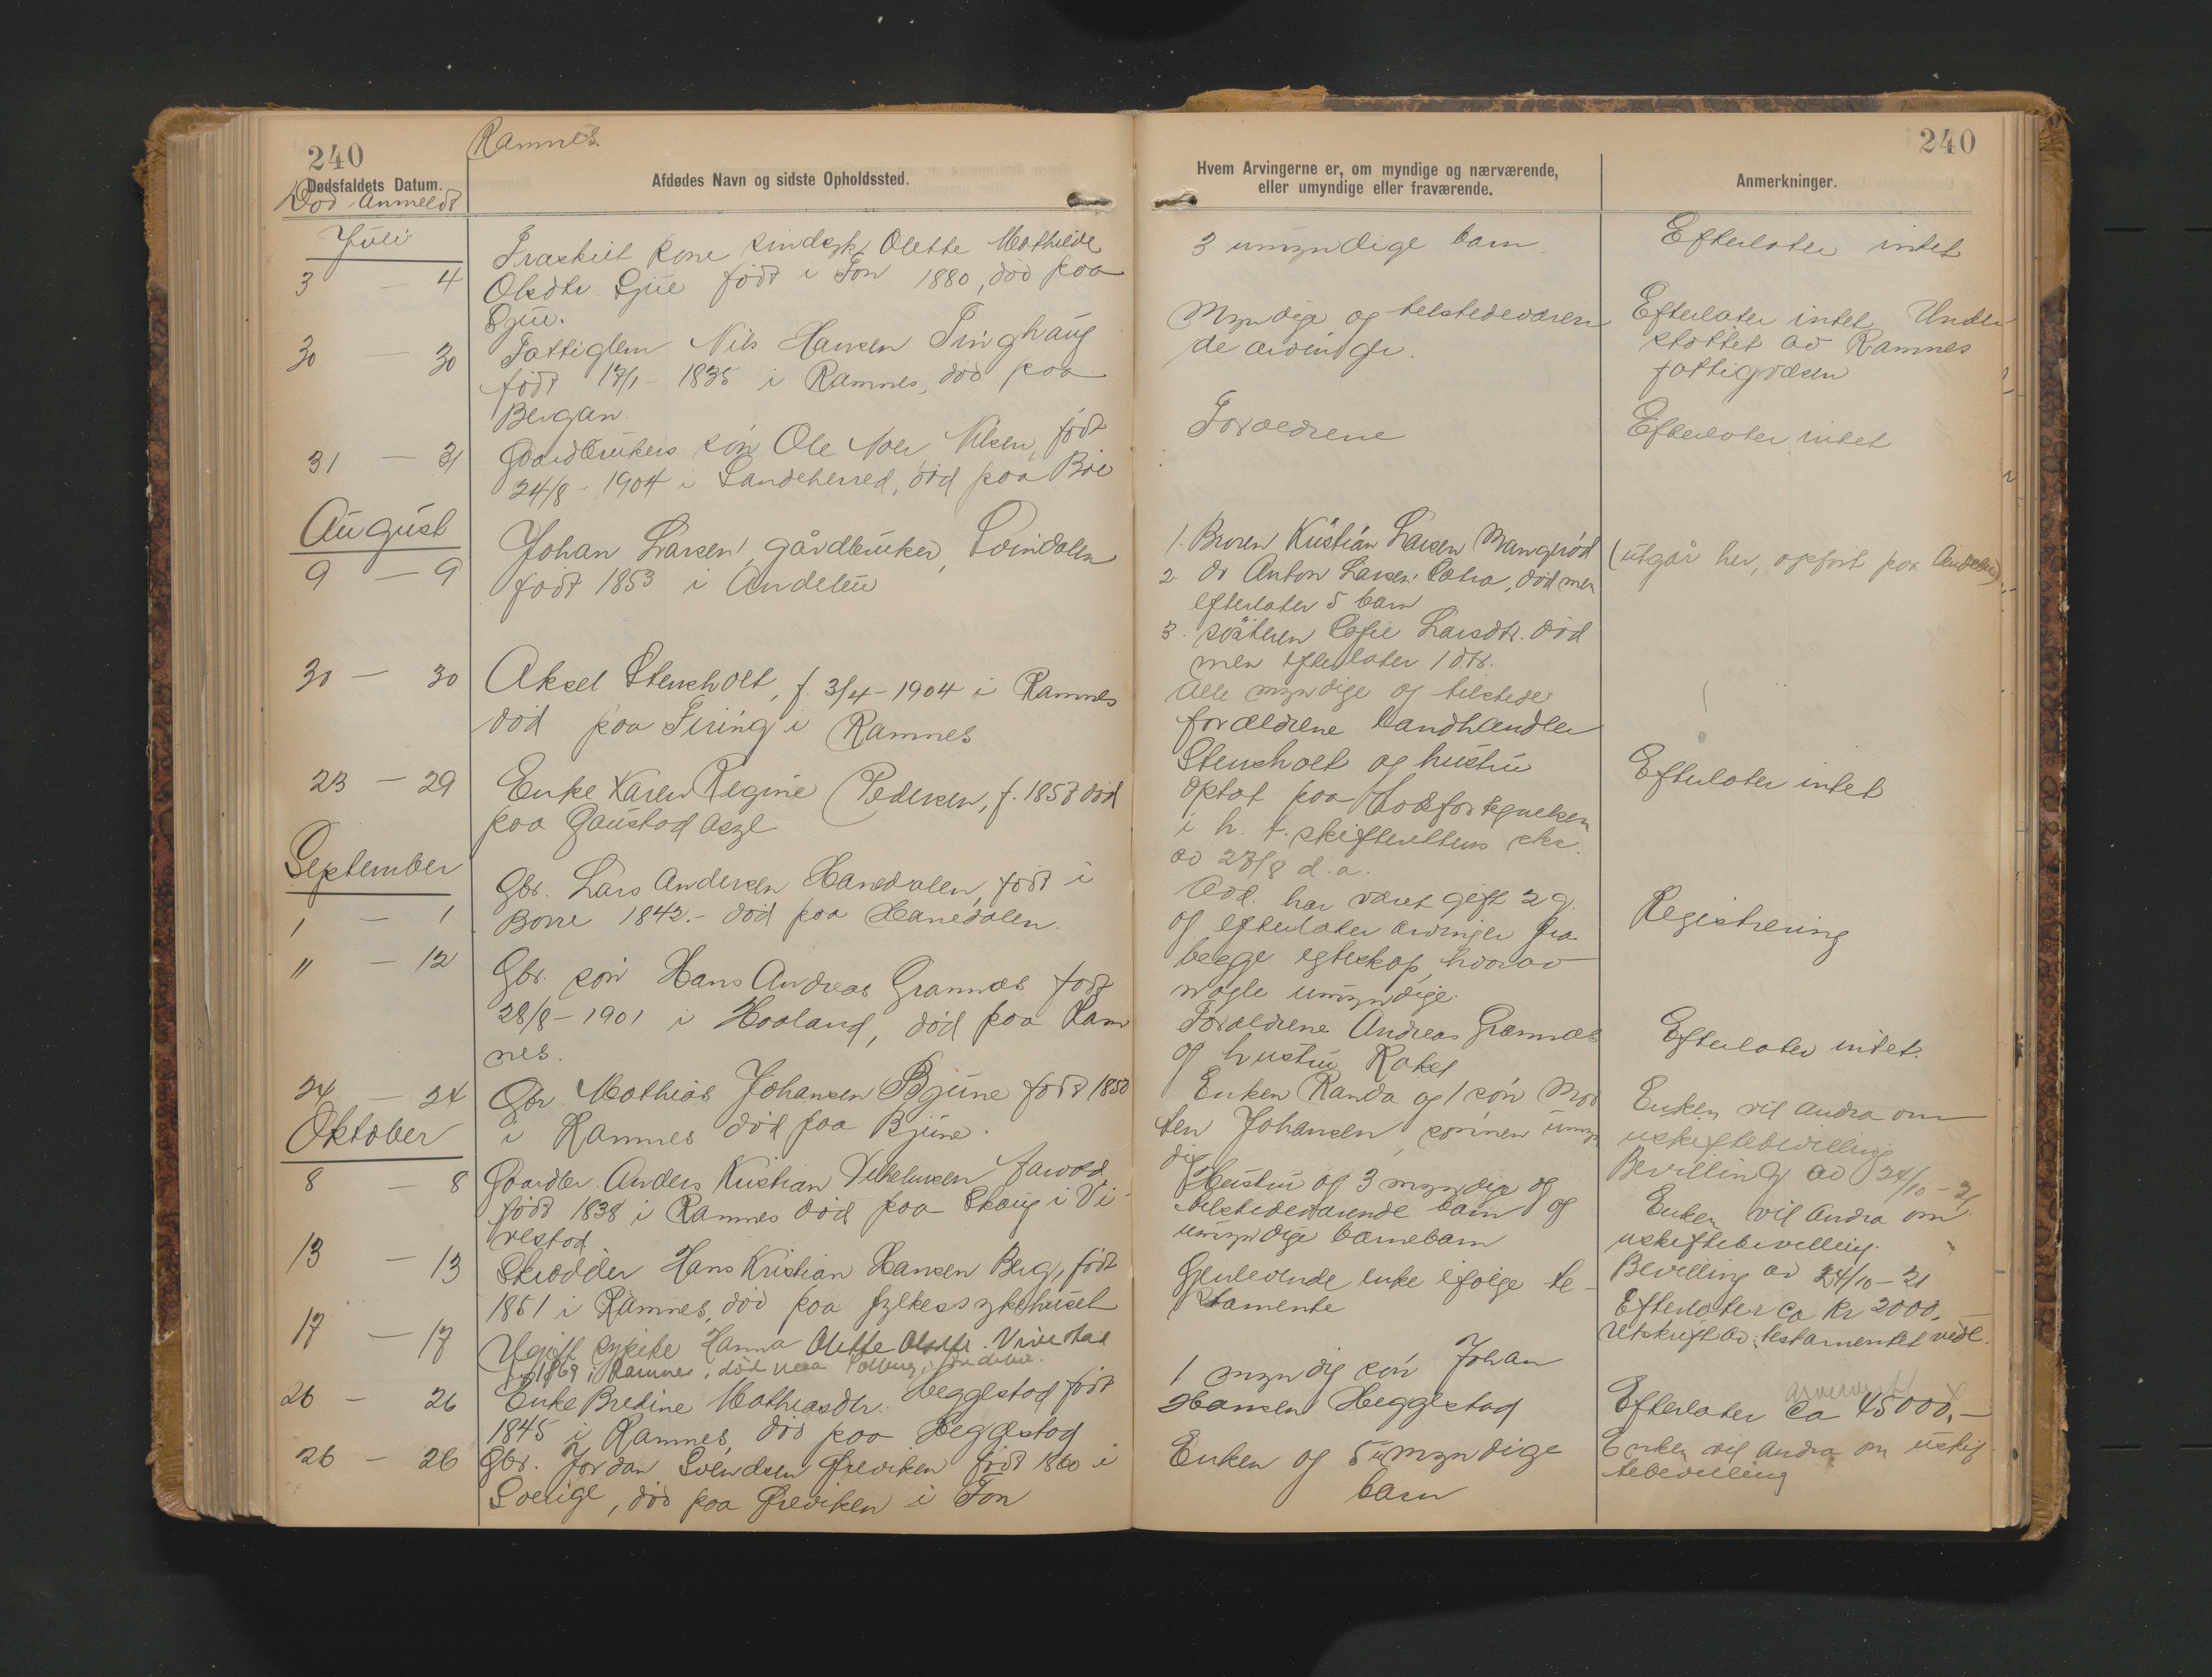 240
Ramnes
Dødsfaldets Datum.
Afdødes Navn og sidste Opholdssted.
Død Anmeldt
Juli
3 — 4
Fraskilt kone sindsyk Olette Mathilde
Olsdtr. Gjue født i Fon 1880, død paa
Gjue.
30 — 30
Fattiglem Nils Hansen Tinghaug
født 17/1 - 1835 i Ramnes, død paa
Bergan.
31 — 31
Gaardbrukers søn Ole Nilsen, født
24/8 - 1904 i Sandeherred, død paa Bøe
August
9 — 9
Johan Larsen, gårdbruker, Svindalen
født 1853 i Andebu
30 — 30
Aksel Stensholt, f. 3/4 - 1904 i Ramnes
død paa Firing i Ramnes
23 — 29
Enke Karen Regine Pedersen, f. 1857 død
paa Gaustad asyl
September
1 — 1
Gbr. Lars Andersen Hanedalen, født i
Borre 1842.- død paa Hanedalen.
" — 12
Gbr. søn Hans Andreas Grannæs født
28/8 - 1901 i Hooland, død paa Ram
nes.
24 — 24
Gbr Mathias Johansen Bjune født 1850
i Ramnes død paa Bjune.
Oktober
8 — 8
Gaardbr. Anders Kristian Vilhelmsen
født 1838 i Ramnes død paa Skaug i Vi-
vestad
13 — 13
Skrædder Hans Kristian Hansen Berg, født
1851 i Ramnes, død paa fylkessykehuset
17 — 17
Ugift pike Hanna Olette Olsdtr. Vivestad
f. 1869 i Ramnes, død i Andebu.
26 — 26
Enke Bredine Mathiasdtr. Heggestad født
1845 i Ramnes, død paa Heggestad
26 — 26
Gbr. Jordan Svendsen Greviken født 1860 i
Sverige, død paa Greviken i Fon
240
Hvem Arvingerne er, om myndige og nærværende,
eller umyndige eller fraværende.
Anmerkninger.
3 umyndige barn.
Efterlater intet
Myndige og tilstedeværen
de arvinger.
Efterlater intet Under
støttet av Ramnes
fattigvæsen
Forældrene
Efterlater intet
1. Broren Kristian Larsen Mangerød
2. do Anton Larsen Sætra, død men
efterlater 5 barn
3. søsteren Sofie Larsdtr. død
men efterlater 1 dtr.
Alle myndige og tilstede
(utgår her, opført paa Andebu)
forældrene landhandler
Stensholt og hustru
Optat paa dødsfortegnelsen
i h. t. skifterettens skr.
av 27/8 d.a.
Efterlater intet
Avd. har været gift 2 g.
og efterlater arvinger fra
begge egteskap, hvorav
nogle umyndige.
Registrering
Forældrene Andreas Grannæs
og hustru Rakel
Efterlater intet.
Enken Randa og 1 søn Mor
ten Johansen, sønnen umyn
dig
Enken vil andra om
uskiftebevilling
Bevilling av 24/10 - 21
Hustru og 3 myndige og
tilstedeværende barn og
umyndige barnebarn
Enken vil andra om
uskiftebevilling.
Bevilling av 24/10 - 21
Gjenlevende enke ifølge te-
stamente
Efterlater ca kr 2000,
Utskrift av testamentet vedl.
1 myndig søn Johan
Hansen Heggestad
Efterlater ca 45000,-
Enken og 5 umyndige
barn
Enken vil andra om uskif-
tebevilling